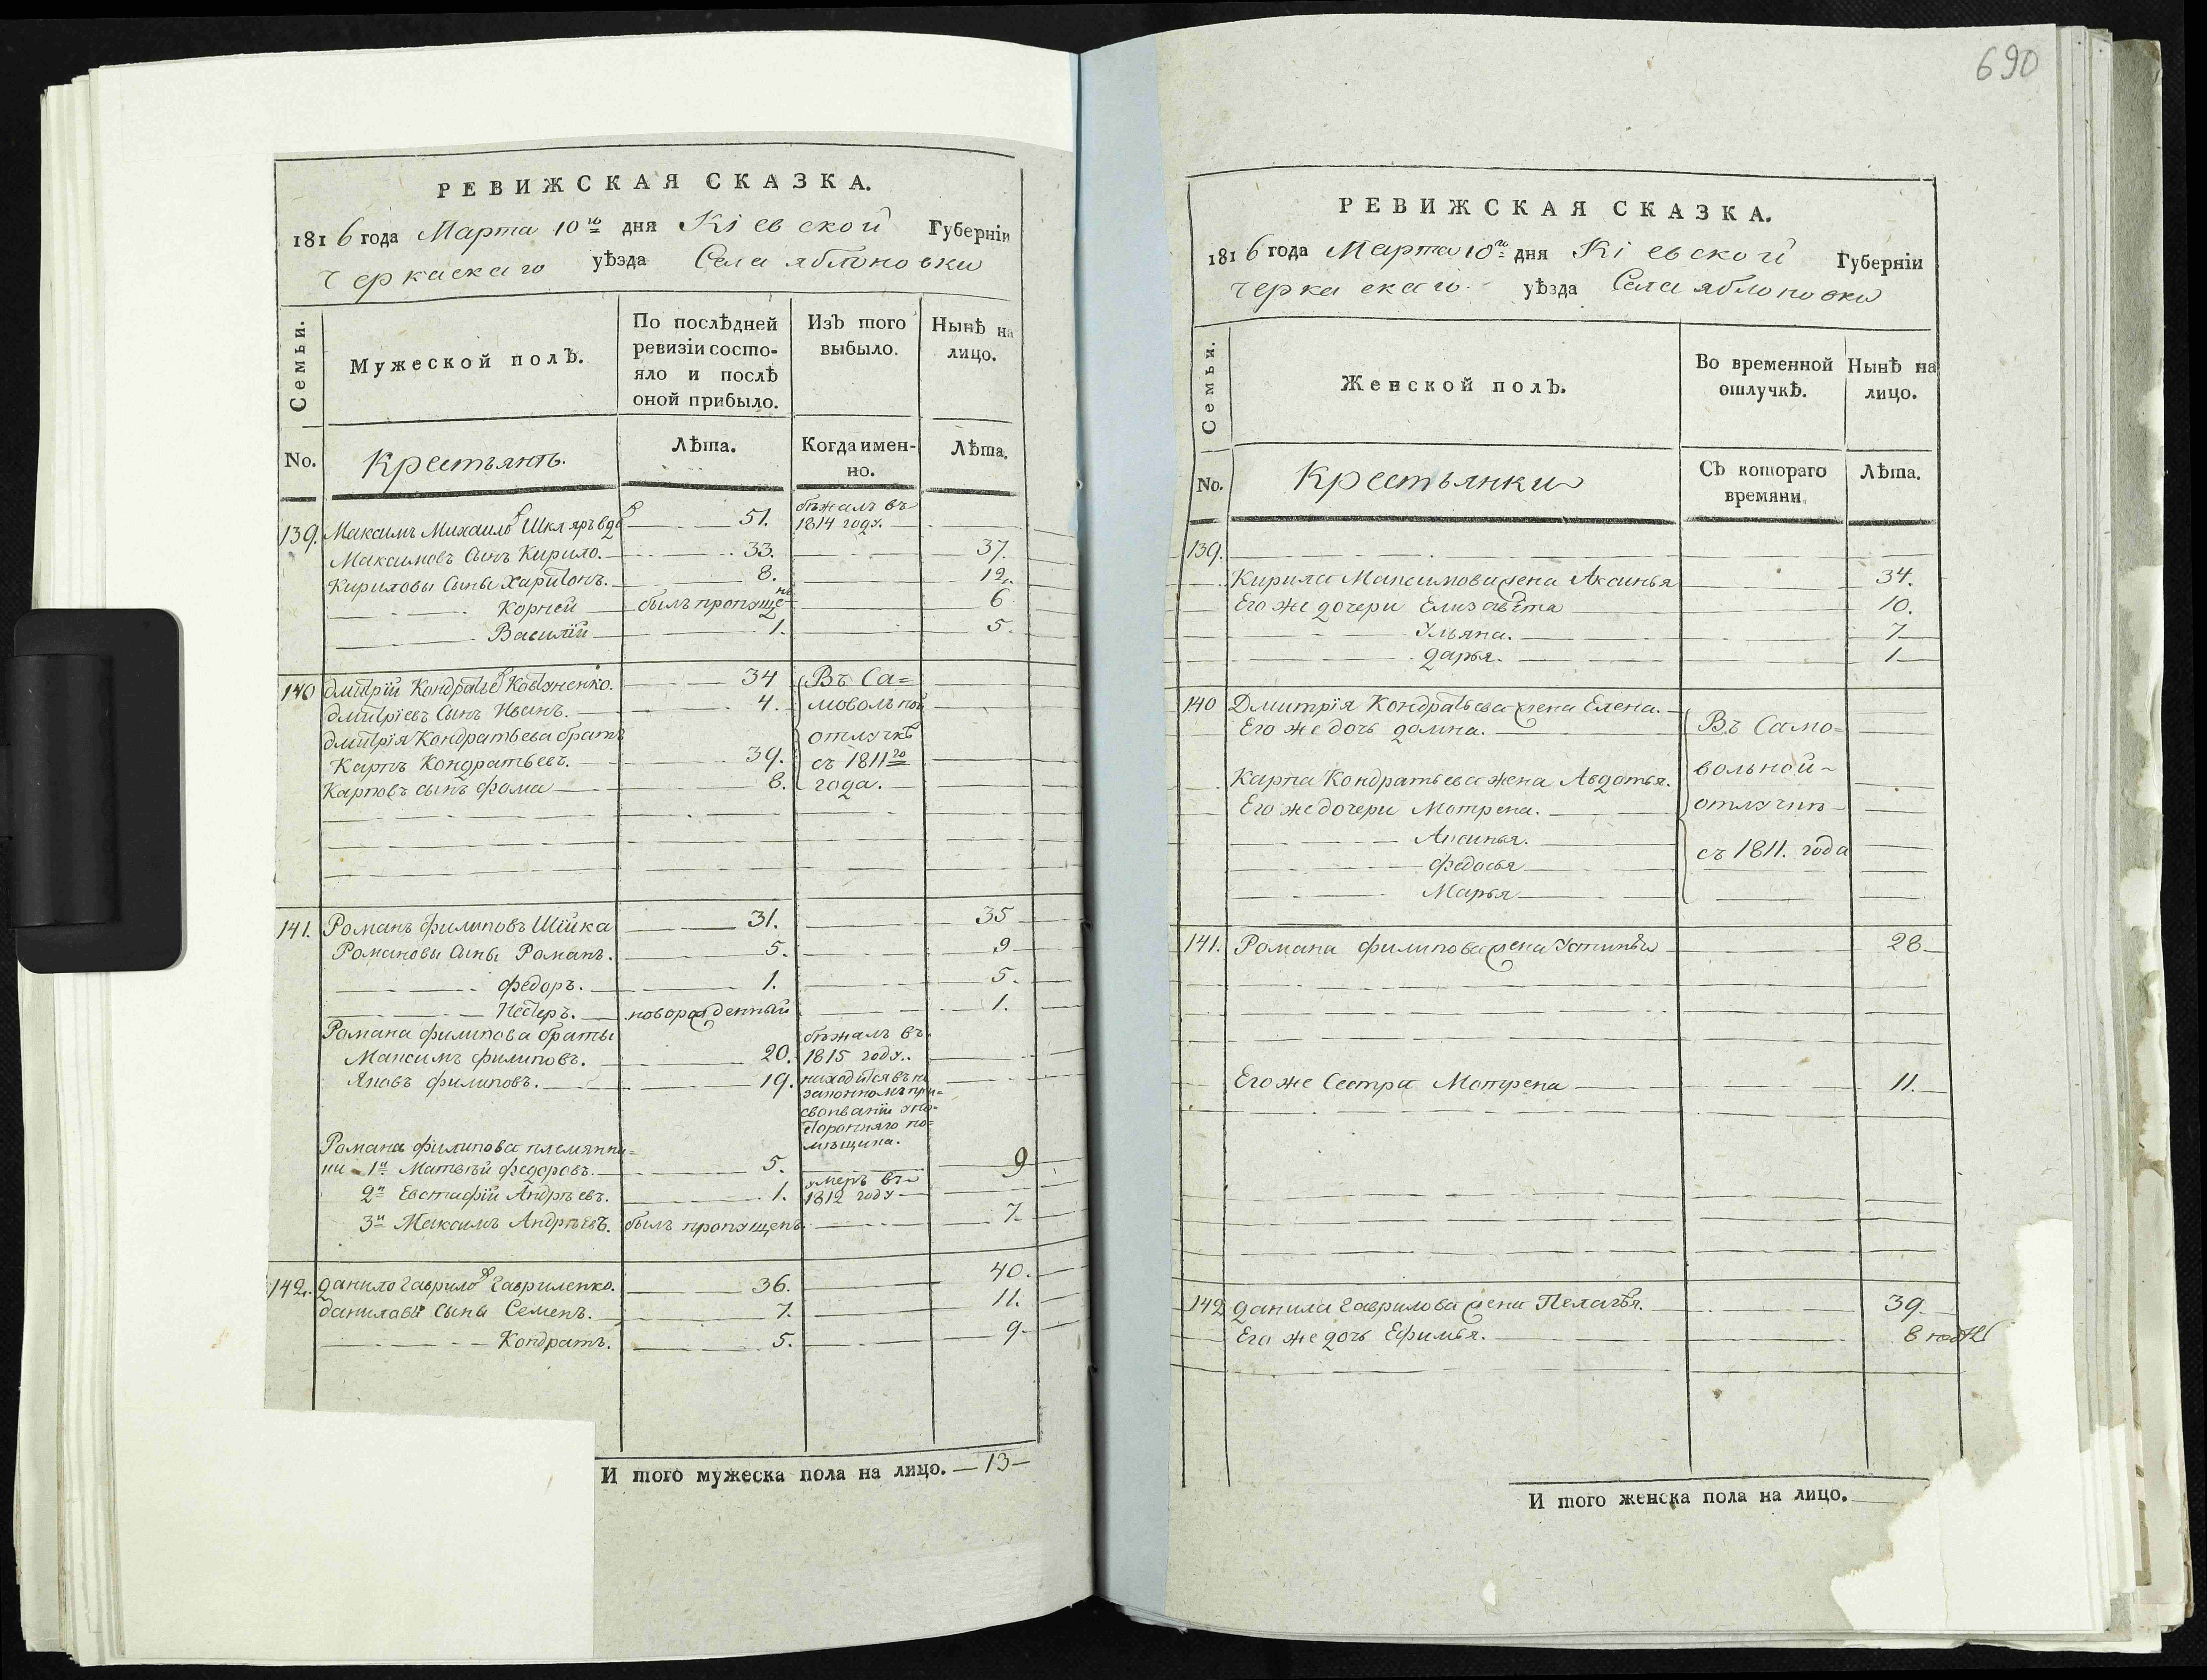 690
РЕВИЖСКАЯ СКАЗКА.
1816 года Марта 10го дня Кіевской Губерніи
Черкаскаго уѣзда Села яблоновки
Семьи.
Мужеской полъ.
По послѣдней
ревизіи состо-
яло и послѣ
оной прибыло.
Изъ того
выбыло.
Нынѣ на
лицо.
No.
Крестьянъ.
Лѣта.
Когда имен-
но.
Лѣта.
139. Максимъ Михаиловъ Шкляръ 51. бѣжалъ въ
1814 году.
Максимовъ Сынъ Кирило. 33. 37.
Кириловы Сыны Харитонъ. 8. 12.
Корней былъ пропущенъ 6
Василій 1. 5.
140 Дмитрій Кондратьевъ 34 Въ Са=
Дмитріевъ Сынъ Иванъ. 4. мовольной
Дмитрія Кондратьева братъ отлучкѣ
Карпъ Кондратьевъ. 39. съ 1811го
Карповъ сынъ Фома 8. года.
141. Романъ Филиповъ Шійка 31. 35
Романовы Сыны Романъ. 5. 9
Федоръ. 1. 5.
Нестеръ. новорожденный 1.
Романа Филипова браты бѣжалъ въ
Максимъ Филиповъ. 20. 1815 году.
Яковъ Филиповъ. 19. находится въ не
законномъ при=
своиваніи
помѣщика.
Романа Филипова племянни=
ки 1й Матвѣй Федоровъ. 5. 9
2й Евстафій Андрѣевъ. 1. умеръ въ
1812 году
3й Максимъ Андрѣевъ. былъ пропущенъ 7.
142. Данило Гавриловъ Гавриленко. 36. 40.
Данилавы Сыны Семенъ. 7. 11.
Кондратъ. 5. 9.
И того мужеска пола на лицо. 13
РЕВИЖСКАЯ СКАЗКА.
1816 года Марта 10го дня Кіевской Губерніи
Черкаскаго уѣзда Села яблоновки
Семьи.
Женской полъ.
Во временной
отлучкѣ.
Нынѣ на
лицо.
No.
Крестьянки
Съ котораго
времяни.
Лѣта.
139.
Кирила Максимова жена Аксинья 34.
Его же дочери Елизавета 10.
Ульяна. 7
Дарья. 1
140 Дмитрія Кондратьева жена Елена.
Его же дочь Домна. Въ Само=
Карпа Кондратьева жена Авдотья. вольной
Его же дочери Мотрена. отлучки
Аксинья.
Федосья съ 1811. года
Марья
141. Романа Филипова жена Устинья 28
Его же Сестра Мотрена 11.
142 Данила Гаврилова жена Пелагья. 39.
Его же дочь Ефимья. 8
И того женска пола на лицо.